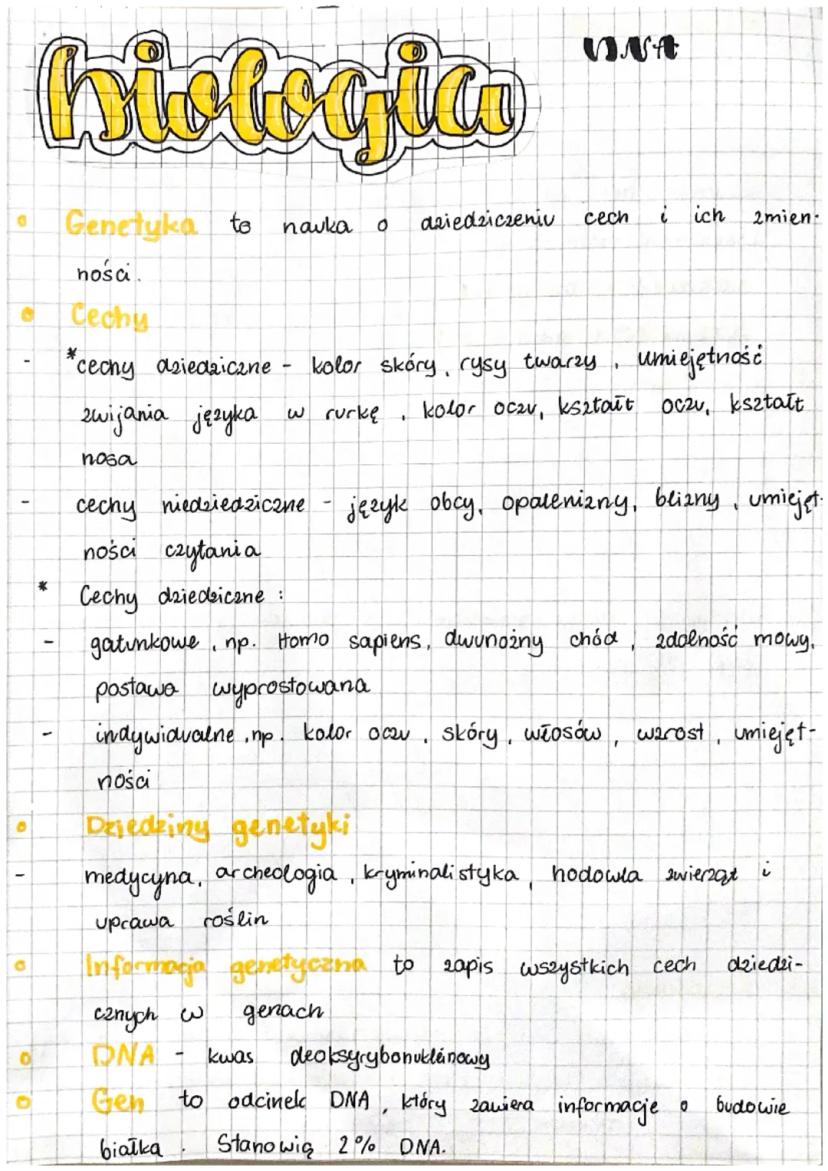 biologia
DNA
Genetyka to nauka o dziedziczeniu cech i ich zmien-
ności.
Cechy
- *cechy dziedziczne - kolor skóry, rysy twarzy, umiejętność
zwijania języka w rurkę, kolor oczu, kształt oczu, kształt
nosa
- cechy niedziedziczne - język obcy, opalenizny, blizny, umiejęt-
ności czytania
* Cechy dziedziczne :
- gatunkowe, np. Homo sapiens, dwunożny chód, zdolność mowy,
postawa wyprostowana
- indywidualne, np. kolor oczu, skóry, włosów, wzrost, umiejęt-
ności
Dziedziny genetyki
- medycyna, archeologia, kryminalistyka, hodowla zwierząt i
uprawa roślin
Informacja genetyczna to zapis wszystkich cech dziedzi-
cznych w genach
DNA - kwas deoksyrybonukleinowy
Gen to odcinek DNA, który zawiera informacje o budowie
białka. Stanowią 2% DNA.